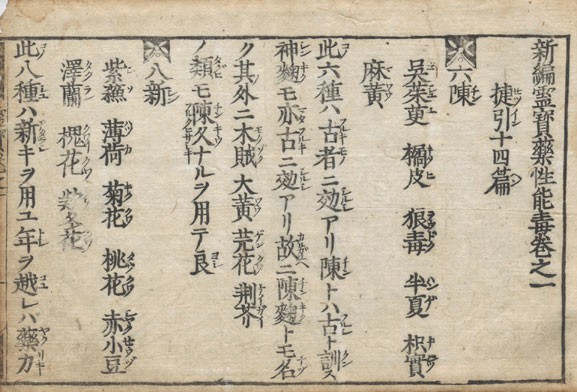 新編靈寳藥性能毒卷之一
捷引十四篇
六陳
呉茱萸 橘皮 狼毒 半夏 枳實
麻黄
此六種ハ古者ニ効アリ陳トハ古ト訓ス
神麹モ亦古ニ効アリ故ニ陳麹トモ名
ク其外ニ木賊 大黄 芫花 荆芥
ノ類モ陳久ナルヲ用テ良
八新
紫蘓 薄荷 菊花 桃花 赤小豆
澤蘭 槐花 欵冬花
此八種ハ新キヲ用ユ年ヲ越レハ藥力